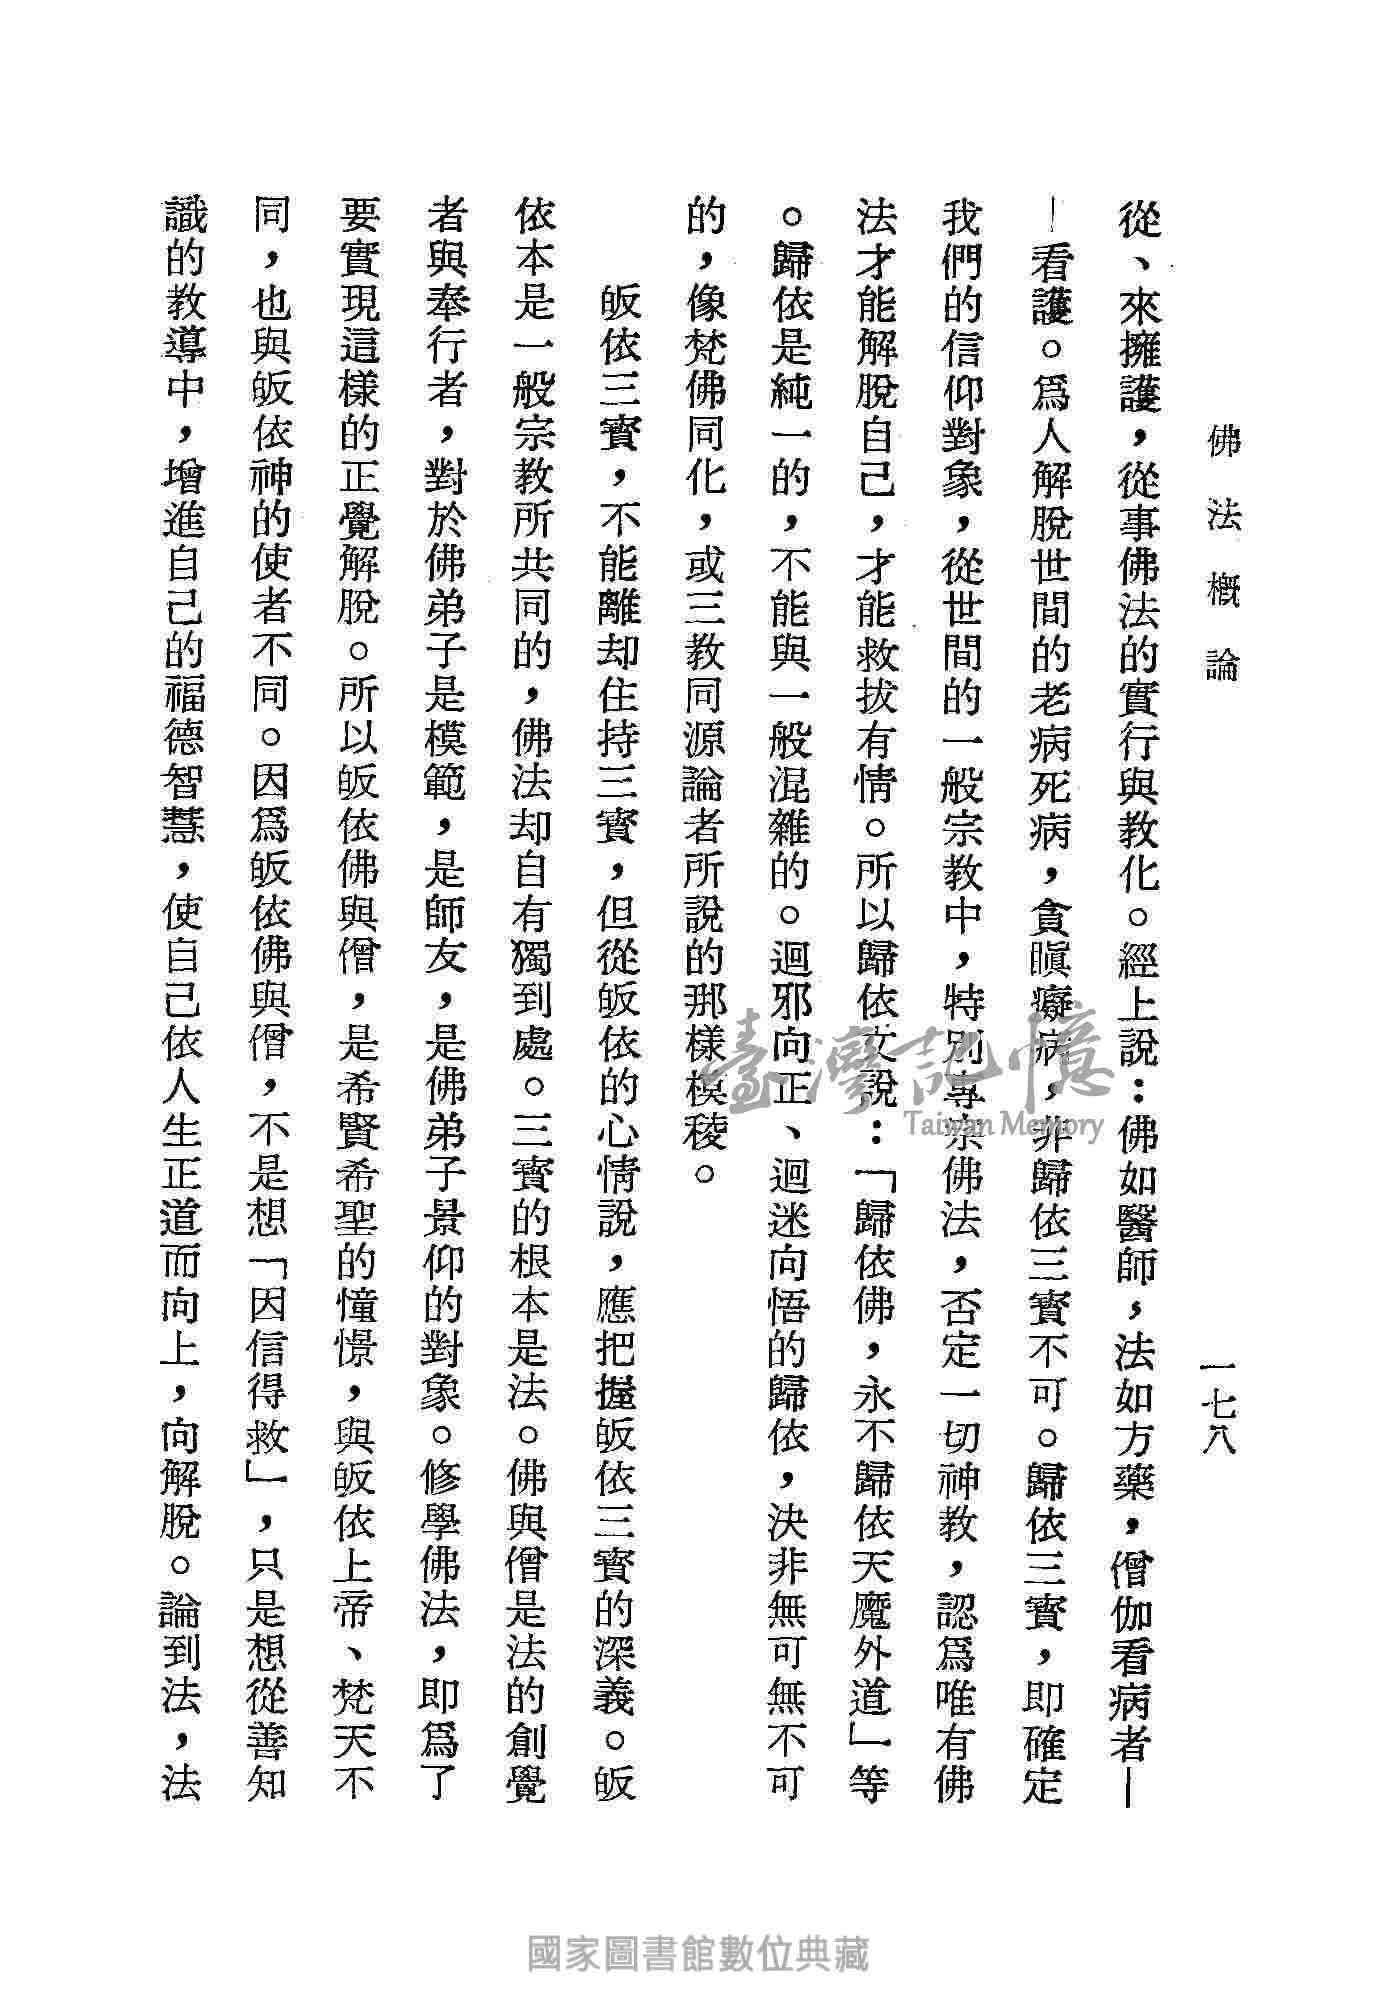 佛法概論
一七八
從、來擁護，從事佛法的實行與教化。經上說：佛如醫師，法如方藥，僧伽看病者—
—看護。爲人解脫世間的老病死病，貪瞋癡病，非歸依三寳不可。歸依三寳，即確定
我們的信仰對象，從世間的一般宗教中，特別專宗佛法，否定一切神教，認爲唯有佛
法才能解脫自己，才能救拔有情。所以歸依文說：「歸依佛，永不歸依天魔外道」等
。歸依是純一的，不能與一般混雜的。迴邪向正、迴迷向悟的歸依，決非無可無不可
的，像梵佛同化，或三教同源論者所說的那樣模稜。
皈依三寳，不能離却住持三寳，但從皈依的心情說，應把握皈依三寳的深義。皈
依本是一般宗教所共同的，佛法却自有獨到處。三寳的根本是法。佛與僧是法的創覺
者與奉行者，對於佛弟子是模範，是師友，是佛弟子景仰的對象。修學佛法，即爲了
要實現這樣的正覺解脫。所以皈依佛與僧，是希賢希聖的憧憬，與皈依上帝、梵天不
同，也與皈依神的使者不同。因爲皈依佛與僧，不是想「因信得救」，只是想從善知
識的教導中，增進自己的福德智慧，使自己依人生正道而向上，向解脫。論到法，法
臺灣記憶
Taiwan Memory
國家圖書館數位典藏